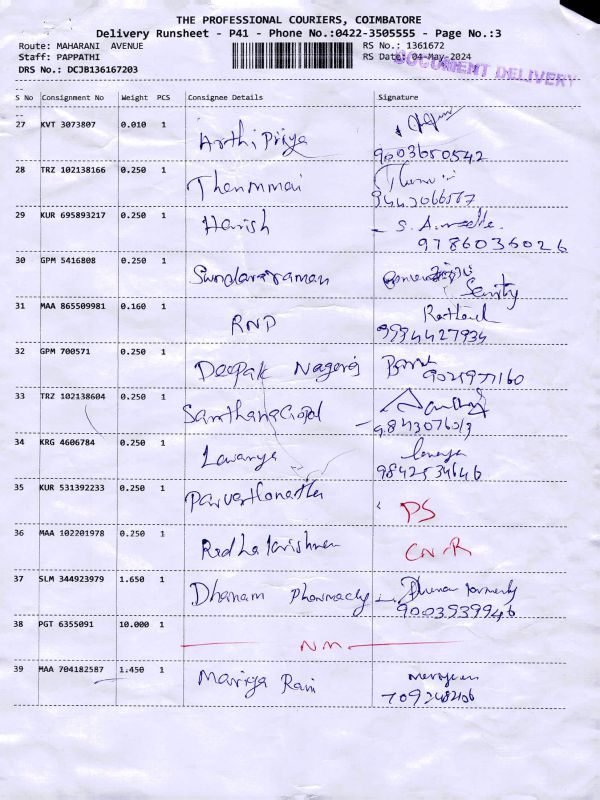 THE PROFESSIONAL COURIERS, COIMBATORE
Delivery Runsheet - P41 - Phone No.:0422-3505555 - Page No.:3
Route: MAHARANI AVENUE RS No.: 1361672
Staff: PAPPATHI RS Date: 04-May-2024
DOCUMENT DELIVERY
DRS No.: DCJB136167203
S No Consignment No Weight PCS Consignee Details Signature
27 KVT 3073807 0.010 1 Arthi Priya
9003650542
28 TRZ 102138166 0.250 1 Thenmmai
29 KUR 695893217 0.250 1 Harish
9786036026
30 GPM 5416808 0.250 1 Sundararaman
31 MAA 865509981 0.160 1 RNP
9994427934
32 GPM 700571 0.250 1 Deepak Nagaraj
33 TRZ 102138604 0.250 1 SanthanaGopal
34 KRG 4606784 0.250 1 Lavanya
9842534646
35 KUR 531392233 0.250 1 PS
36 MAA 102201978 0.250 1 Radhakrishnan
37 SLM 344923979 1.650 1 Dhanam Pharmacy
9003539946
38 PGT 6355091 10.000 1
NM
39 MAA 704182587 1.450 1 Mariya Rani